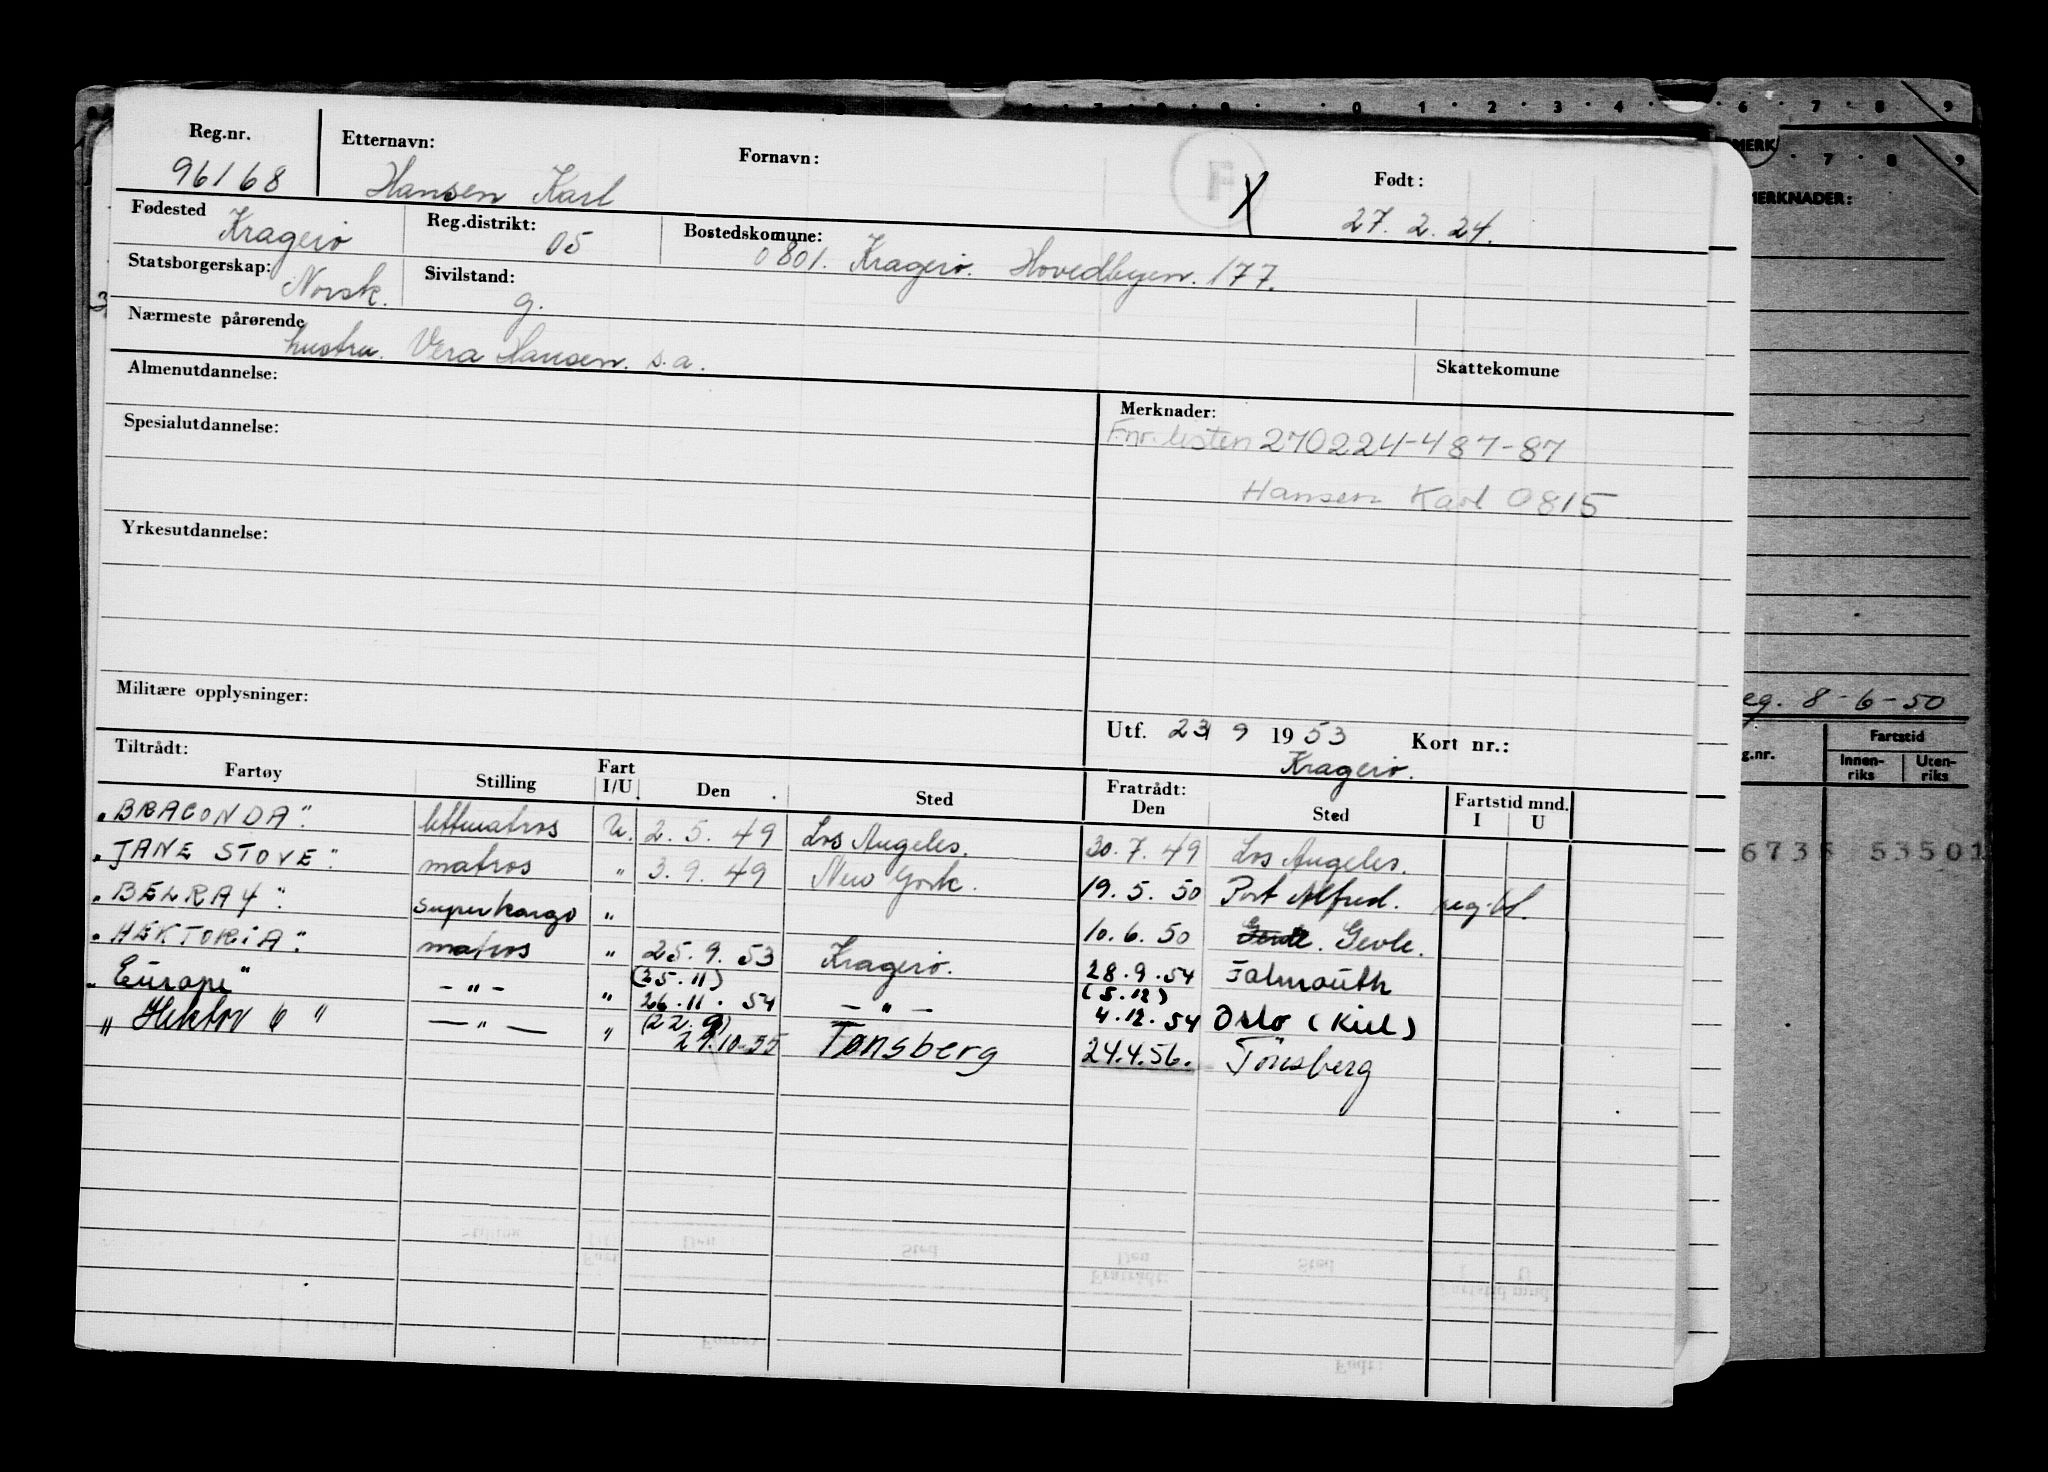 Reg.nr. Etternavn: Fornavn: Født:
96168 Hansen Karl F X 27.2.24.
Fødested Kragerø Reg.distrikt: 05 Bostedskomune: 0801. Kragerø. Hovedbyen. 177.
Statsborgerskap: Norsk. Sivilstand: g.
Nærmeste pårørende hustru. Vera Hansen. s.a.
Skattekomune
Almenutdannelse:
Merknader:
Fnr.listen 270224-487-87
Hansen Karl 0815
Spesialutdannelse:
Yrkesutdannelse:
Militære opplysninger:
Utf. 23 9 1953 Kort nr.:
Kragerø.
Tiltrådt:
Fartøy Stilling Fart I/U. Den Sted Fratrådt: Den Sted Fartstid mnd. I U
"BRAGONDA". lettmatros U. 2.5.49 Los Angeles. 30.7.49 Los Angeles.
"JANE STOVE". matros " 3.9.49 New York. 19.5.50 Port Alfred.
"BELRAY". superkargo " 10.6.50 Gevle.
"HEKTORIA". matros " 25.9.53 Kragerø. 28.9.54 Falmouth
"Europe" -"- " (25.11) 26.11.54 -"- (5.12) 4.12.54 Oslo (Kiel)
"Hektor 6" -"- " (22.9) 29.10-55 Tønsberg 24.4.56. Tønsberg
MERK
MERKNADER:
eg. 8-6-50
g.nr. Fartstid
Innen-riks Uten-riks
53501